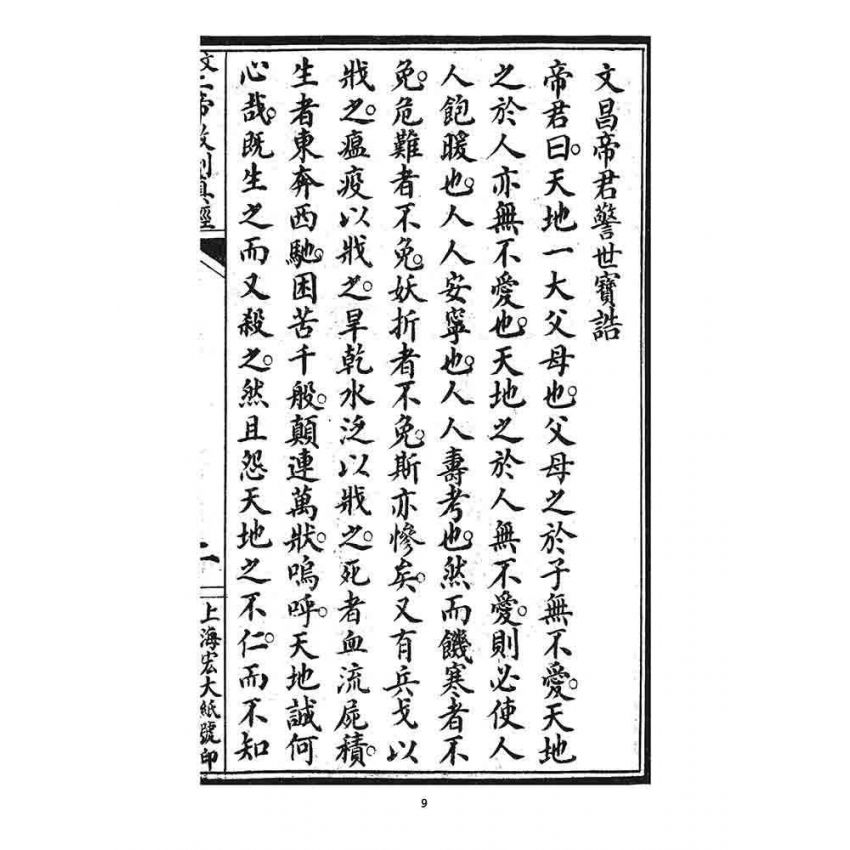 文昌帝君警世寶誥
帝君曰。天地一大父母也。父母之於子無不愛。天地
之於人亦無不愛也。天地之於人無不愛。則必使人
人飽暖也。人人安寧也。人人壽考也。然而饑寒者不
免。危難者不免。妖折者不免。斯亦慘矣。又有兵戈以
戕之。瘟疫以戕之。旱乾水泛以戕之。死者血流屍積。
生者東奔西馳。困苦千般。顛連萬狀。嗚呼。天地誠何
心哉。既生之而又殺之。然且怨天地之不仁。而不知
帝
真經
二
上海宏大紙號印
9